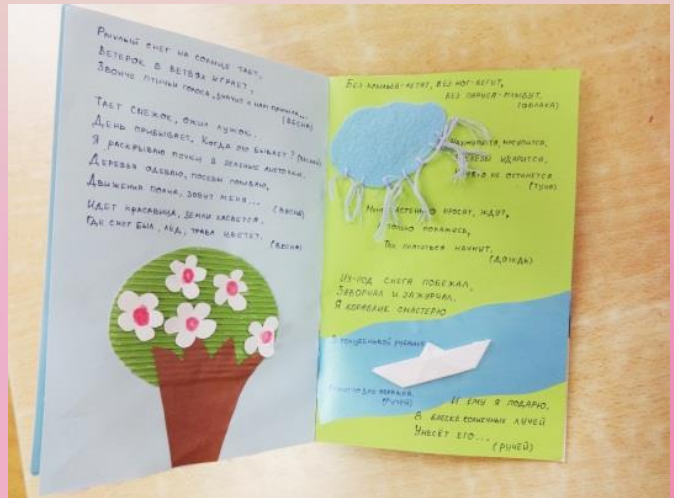 Рыхлый снег на солнце тает,
Ветерок в ветвях играет,
Звонче птичьи голоса, значит к нам пришла...
(весна)
Тает снежок, ожил лужок.
День прибывает. Когда это бывает? (весной)
Я раскрываю почки в зеленые листочки.
Деревья одеваю, посевы поливаю,
Движения полна, зовут меня... (весна)
Идет красавица, земли касается.
Где снег был, лед, трава цветет.
(весна)
Без крыльев-летят, без ног-бегут,
без паруса-плывут.
(облака)
нахмурится,
ударится,
не останется
(туча)
просят, ждут,
только покажусь,
прятаться начнут.
(дождь)
Из-под снега побежал,
Заворчал и зажурчал.
Я кораблик смастерю
В голубенькой рубашке
(ручей)
И ему я подарю,
В блеске солнечных лучей
Унесёт его...
(ручей)